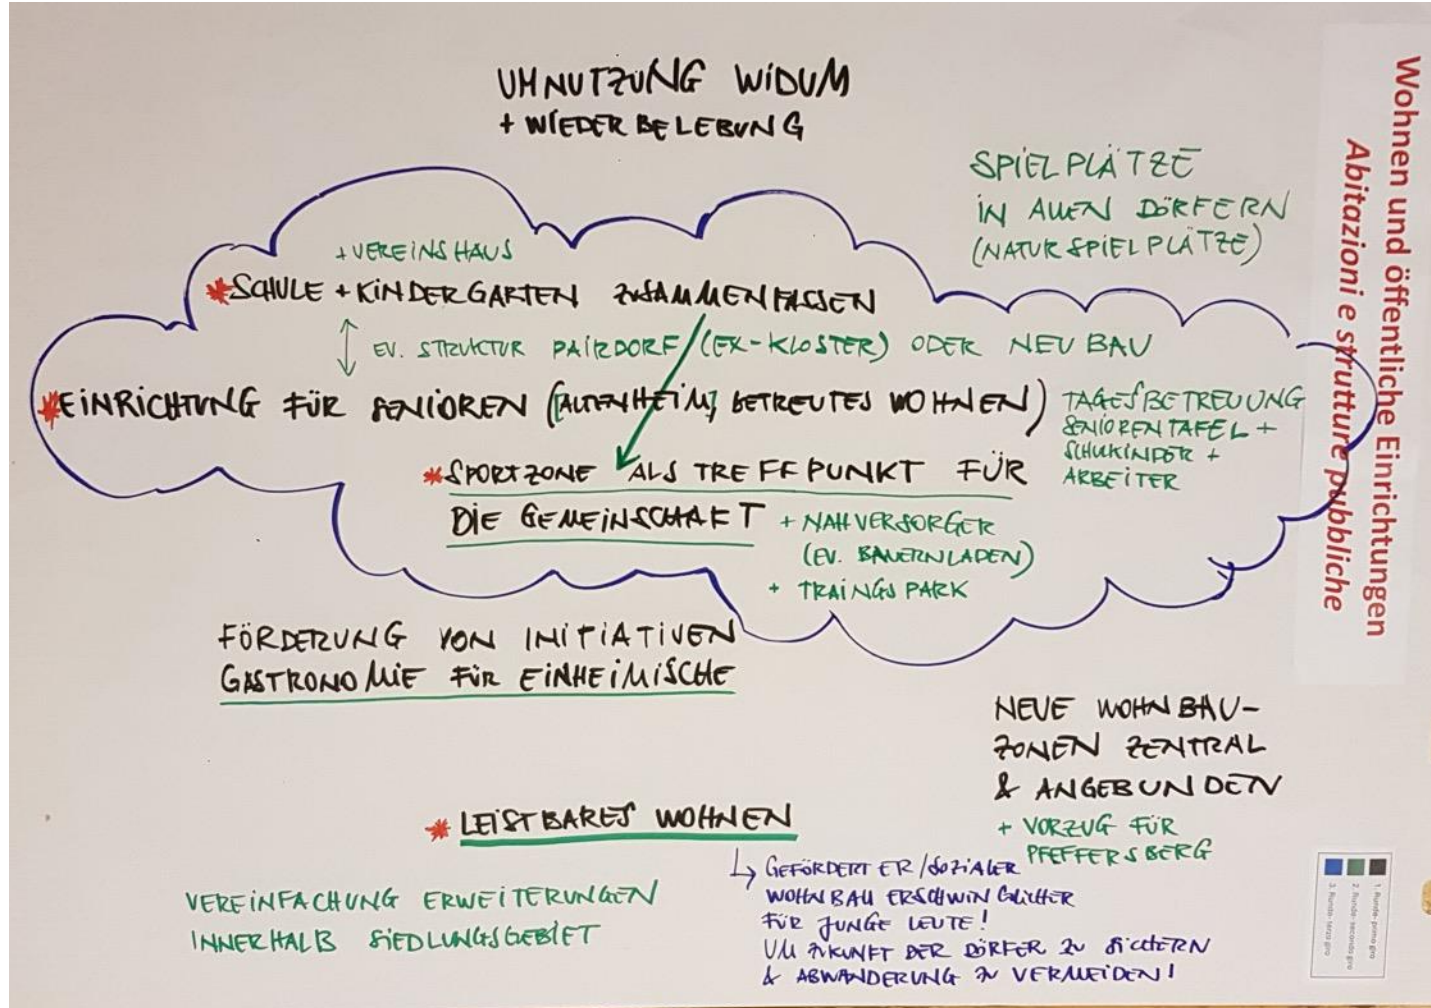 UMNUTZUNG WIDUM
+ WIEDERBELEBUNG
SPIELPLÄTZE
IN ALLEN DÖRFERN
(NATURSPIELPLÄTZE)
+ VEREINSHAUS
*SCHULE + KINDERGARTEN ZUSAMMENFASSEN
EV. STRUKTUR PAIRDORF (EX-KLOSTER) ODER NEUBAU
*EINRICHTUNG FÜR SENIOREN ([ALTENHEIM] BETREUTES WOHNEN)
TAGESBETREUUNG
SENIORENTAFEL +
SCHULKINDER +
ARBEITER
*SPORTZONE ALS TREFFPUNKT FÜR
DIE GEMEINSCHAFT
+ NAHVERSORGER
(EV. BAUERNLADEN)
+ TRAINGSPARK
FÖRDERUNG VON INITIATIVEN
GASTRONOMIE FÜR EINHEIMISCHE
NEUE WOHNBAU-
ZONEN ZENTRAL
& ANGEBUNDEN
+ VORZUG FÜR
PFEFFERSBERG
* LEISTBARES WOHNEN
↳ GEFÖRDERTER/SOZIALER
WOHNBAU ERSCHWINGLICHER
FÜR JUNGE LEUTE!
UM ZUKUNFT DER DÖRFER ZU SICHERN
& ABWANDERUNG ZU VERMEIDEN!
VEREINFACHUNG ERWEITERUNGEN
INNERHALB SIEDLUNGSGEBIET
Wohnen und öffentliche Einrichtungen
Abitazioni e strutture pubbliche
1. Runde- primo giro
2. Runde- secondo giro
3. Runde- terzo giro